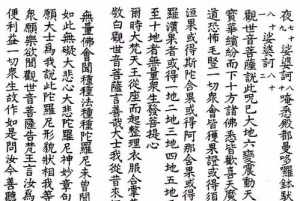 夜九十娑婆訶八十唵悉殿都曼哆囉鉢馱
八十娑婆訶八十
觀世音菩薩說此呪已大地六變震動天
寶華繽紛而下十方諸佛悉皆歡喜天魔
道恐怖毛豎一切衆會皆獲果證或得須
洹果或得斯陀含果或得阿那含果或得
羅漢果者或得一地二地三地四地五地
至十地者無量衆生發菩提心
爾時大梵天王從座而起整理衣服合掌
敬白觀世音菩薩言善哉大士我從昔來
無量佛會聞種種法種種陀羅尼未曾聞
如此無礙大悲心大悲陀羅尼神妙章句
願大士為我說此陀羅尼形貌狀相我等
衆願樂欲聞觀世音菩薩告梵王言汝為
便利益一切衆生故作如是問汝今善聽